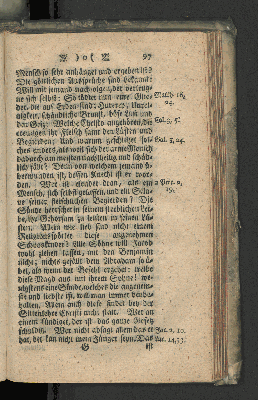 )o( 97
Mensch so sehr anhänget und ergeben ist?
Die göttlichen Aussprüche sind bekannt:
Will mir jemand nachfolgen, der verleug-
ne sich selbst: So tödtet nun eure Glie- Matth. 16,
der, die auf Erden sind: Hurerey, Unrei- 24.
nigkeit, schändliche Brunst, böse Lust und
der Geitz: Welche Christo angehören, die Col. 3, 5.
creutzigen ihr Fleisch samt den Lüsten und
Begierden: Und warum geschiehet sol- Gal. 5, 24.
ches anders, als weil sich der arme Mensch
dadurch am meisten nachtheilig und schäd-
lich fält? Denn von welchem jemand ü-
berwunden ist, dessen Knecht ist er wor-
den. Wer ist elender dran, als ein 2 Petr. 2,
Mensch, sich selbst gelassen, und ein Scla- 19.
ve seiner fleischlichen Begierden? Die
Sünde herrschet in seinem sterblichen Lei-
be, ihr Gehorsam zu leisten in ihren Lü-
sten. Wem nun lieb sind nicht einem
Religionsspötter diese angenehmen
Schooskinder? Alle Söhne will Jacob
wohl ziehen lassen, nur den Benjamin
nicht; nichts gefällt dem Abraham so
bey, als wenn der Befehl erschallt: treibe
diese Magd aus mit ihrem Sohne! we-
nigstens eine Sünde, welches die angenehm-
ste und liebste ist, will man immer beybe-
halten. Allein auch diese findet bey der
Sittenlehre Christi nicht statt. Wer an
einem sündiget, der ist das ganze Gesetze
schuldig. Wer nicht absagt allem das er Jac. 2, 10.
hat, der kan nicht mein Jünger seyn. Das Luc. 14, 33.
G ist